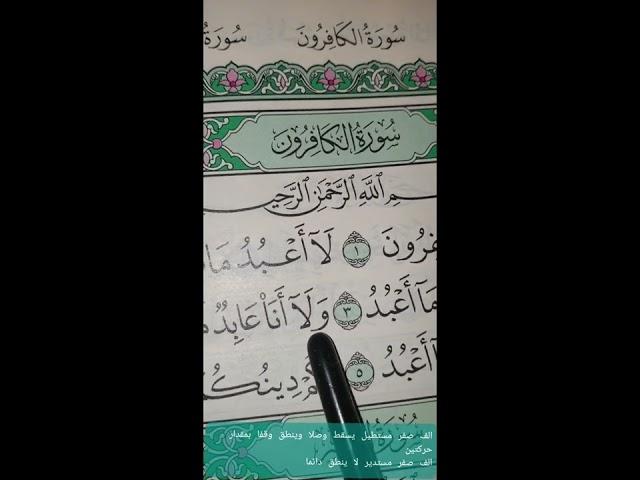 سُورَةُ الكَافِرُونَ سُورَةُ
سُورَةُ الكَافِرُونَ
ـمِ ٱللَّهِ ٱلرَّحْمَٰنِ ٱلرَّحِيـ
ـفِرُونَ ١ لَآ أَعْبُدُ مَا
مَآ أَعْبُدُ ٣ وَلَآ أَنَا۠ عَابِدٌ
أَعْبُدُ ٥ دِينُكُمْ
الف صفر مستطيل يسقط وصلا وينطق وقفا بمقدار
حركتين
الف صفر مستدير لا ينطق دائما